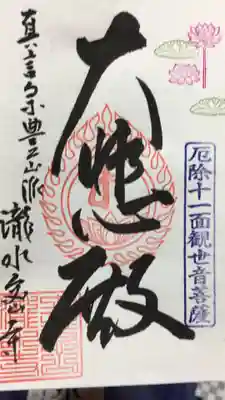 厄除十一面観世音菩薩
大悲殿
真言宗豊山派
瀧水寺